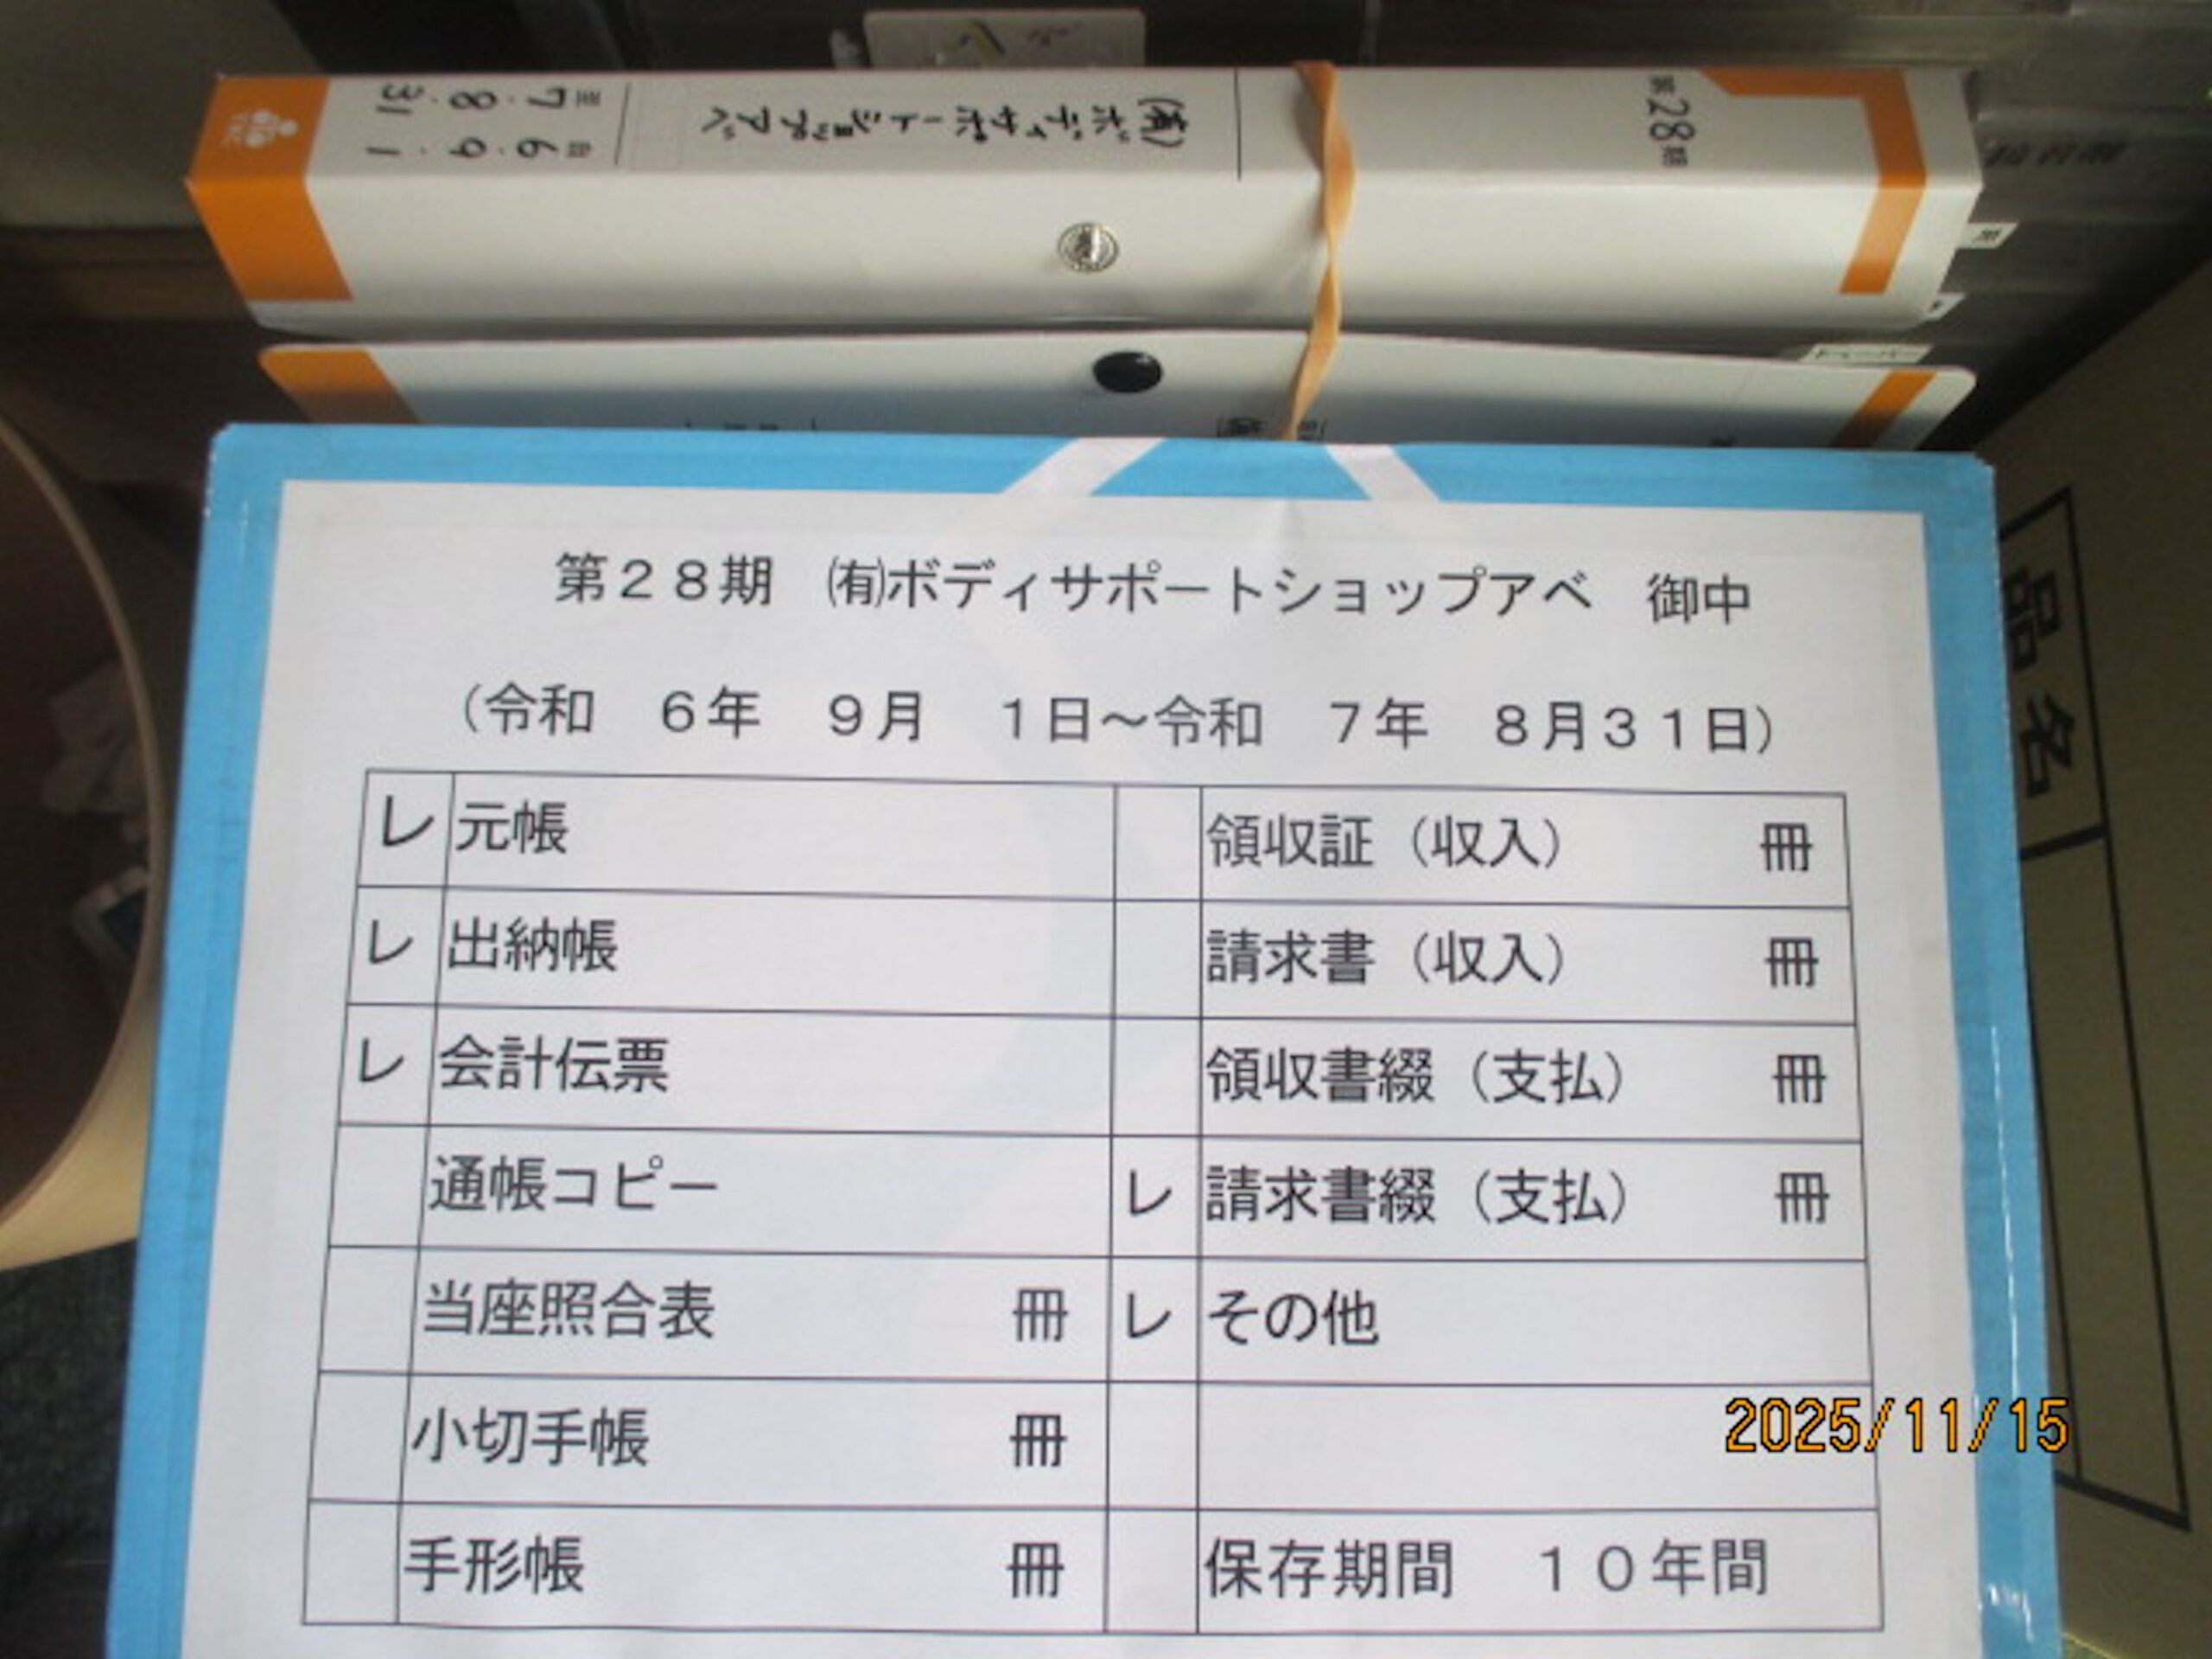 第28期
㈲ボディサポートショップアベ
自 6・9・1
至 7・8・31
第28期 ㈲ボディサポートショップアベ 御中
(令和 6年 9月 1日～令和 7年 8月31日)
レ 元帳 領収証(収入) 冊
レ 出納帳 請求書(収入) 冊
レ 会計伝票 領収書綴(支払) 冊
通帳コピー レ 請求書綴(支払) 冊
当座照合表 冊 レ その他
小切手帳 冊
手形帳 冊 保存期間 10年間
品名
2025/11/15